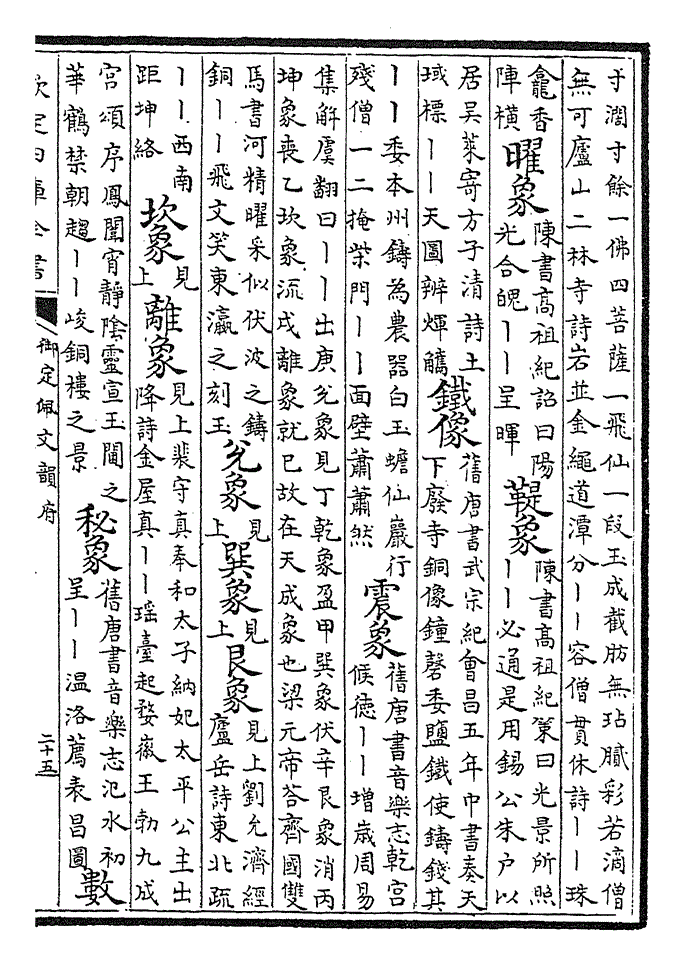 寸濶寸餘一佛四菩薩一飛仙一段玉成截肪無玷膩彩若滴僧
無可廬山二林寺詩岩並金繩道潭分丨丨容僧貫休詩丨丨珠
龕香
陣橫
曜象
陳書高祖紀詔曰陽
光合魄丨丨呈暉
鞮象
陳書高祖紀策曰光景所照
丨丨必通是用錫公朱户以
居吴萊寄方子清詩土
域標丨丨天圖辨煇觿
鐵像
舊唐書武宗紀會昌五年中書奏天
下廢寺銅像鐘磬委鹽鐵使鑄錢其
丨丨委本州鑄為農器白玉蟾仙巖行
殘僧一二掩柴門丨丨面壁蕭蕭然
震象
舊唐書音樂志乾宮
候德丨丨增歳周易
集解虞翻曰丨丨出庚兊象見丁乾象盈甲巽象伏辛艮象消丙
坤象喪乙坎象流戊離象就巳故在天成象也梁元帝荅齊國雙
馬書河精曜采似伏波之鑄
銅丨丨飛文笑東瀛之刻玉
兊象
見
上
巽象
見
上
艮象
見上劉允濟經
廬岳詩東北疏
丨丨西南
距坤絡
坎象
見
上
離象
見上裴守真奉和太子納妃太平公主出
降詩金屋真丨丨瑤臺起婺徽王勃九成
宮頌序鳳闈宵靜陰靈宣玉闥之
華鶴禁朝趨丨丨峻銅樓之景
秘象
舊唐書音樂志汜水初
呈丨丨温洛薦表昌圖
數
欽定四庫全書
御定佩文韻府
二十五